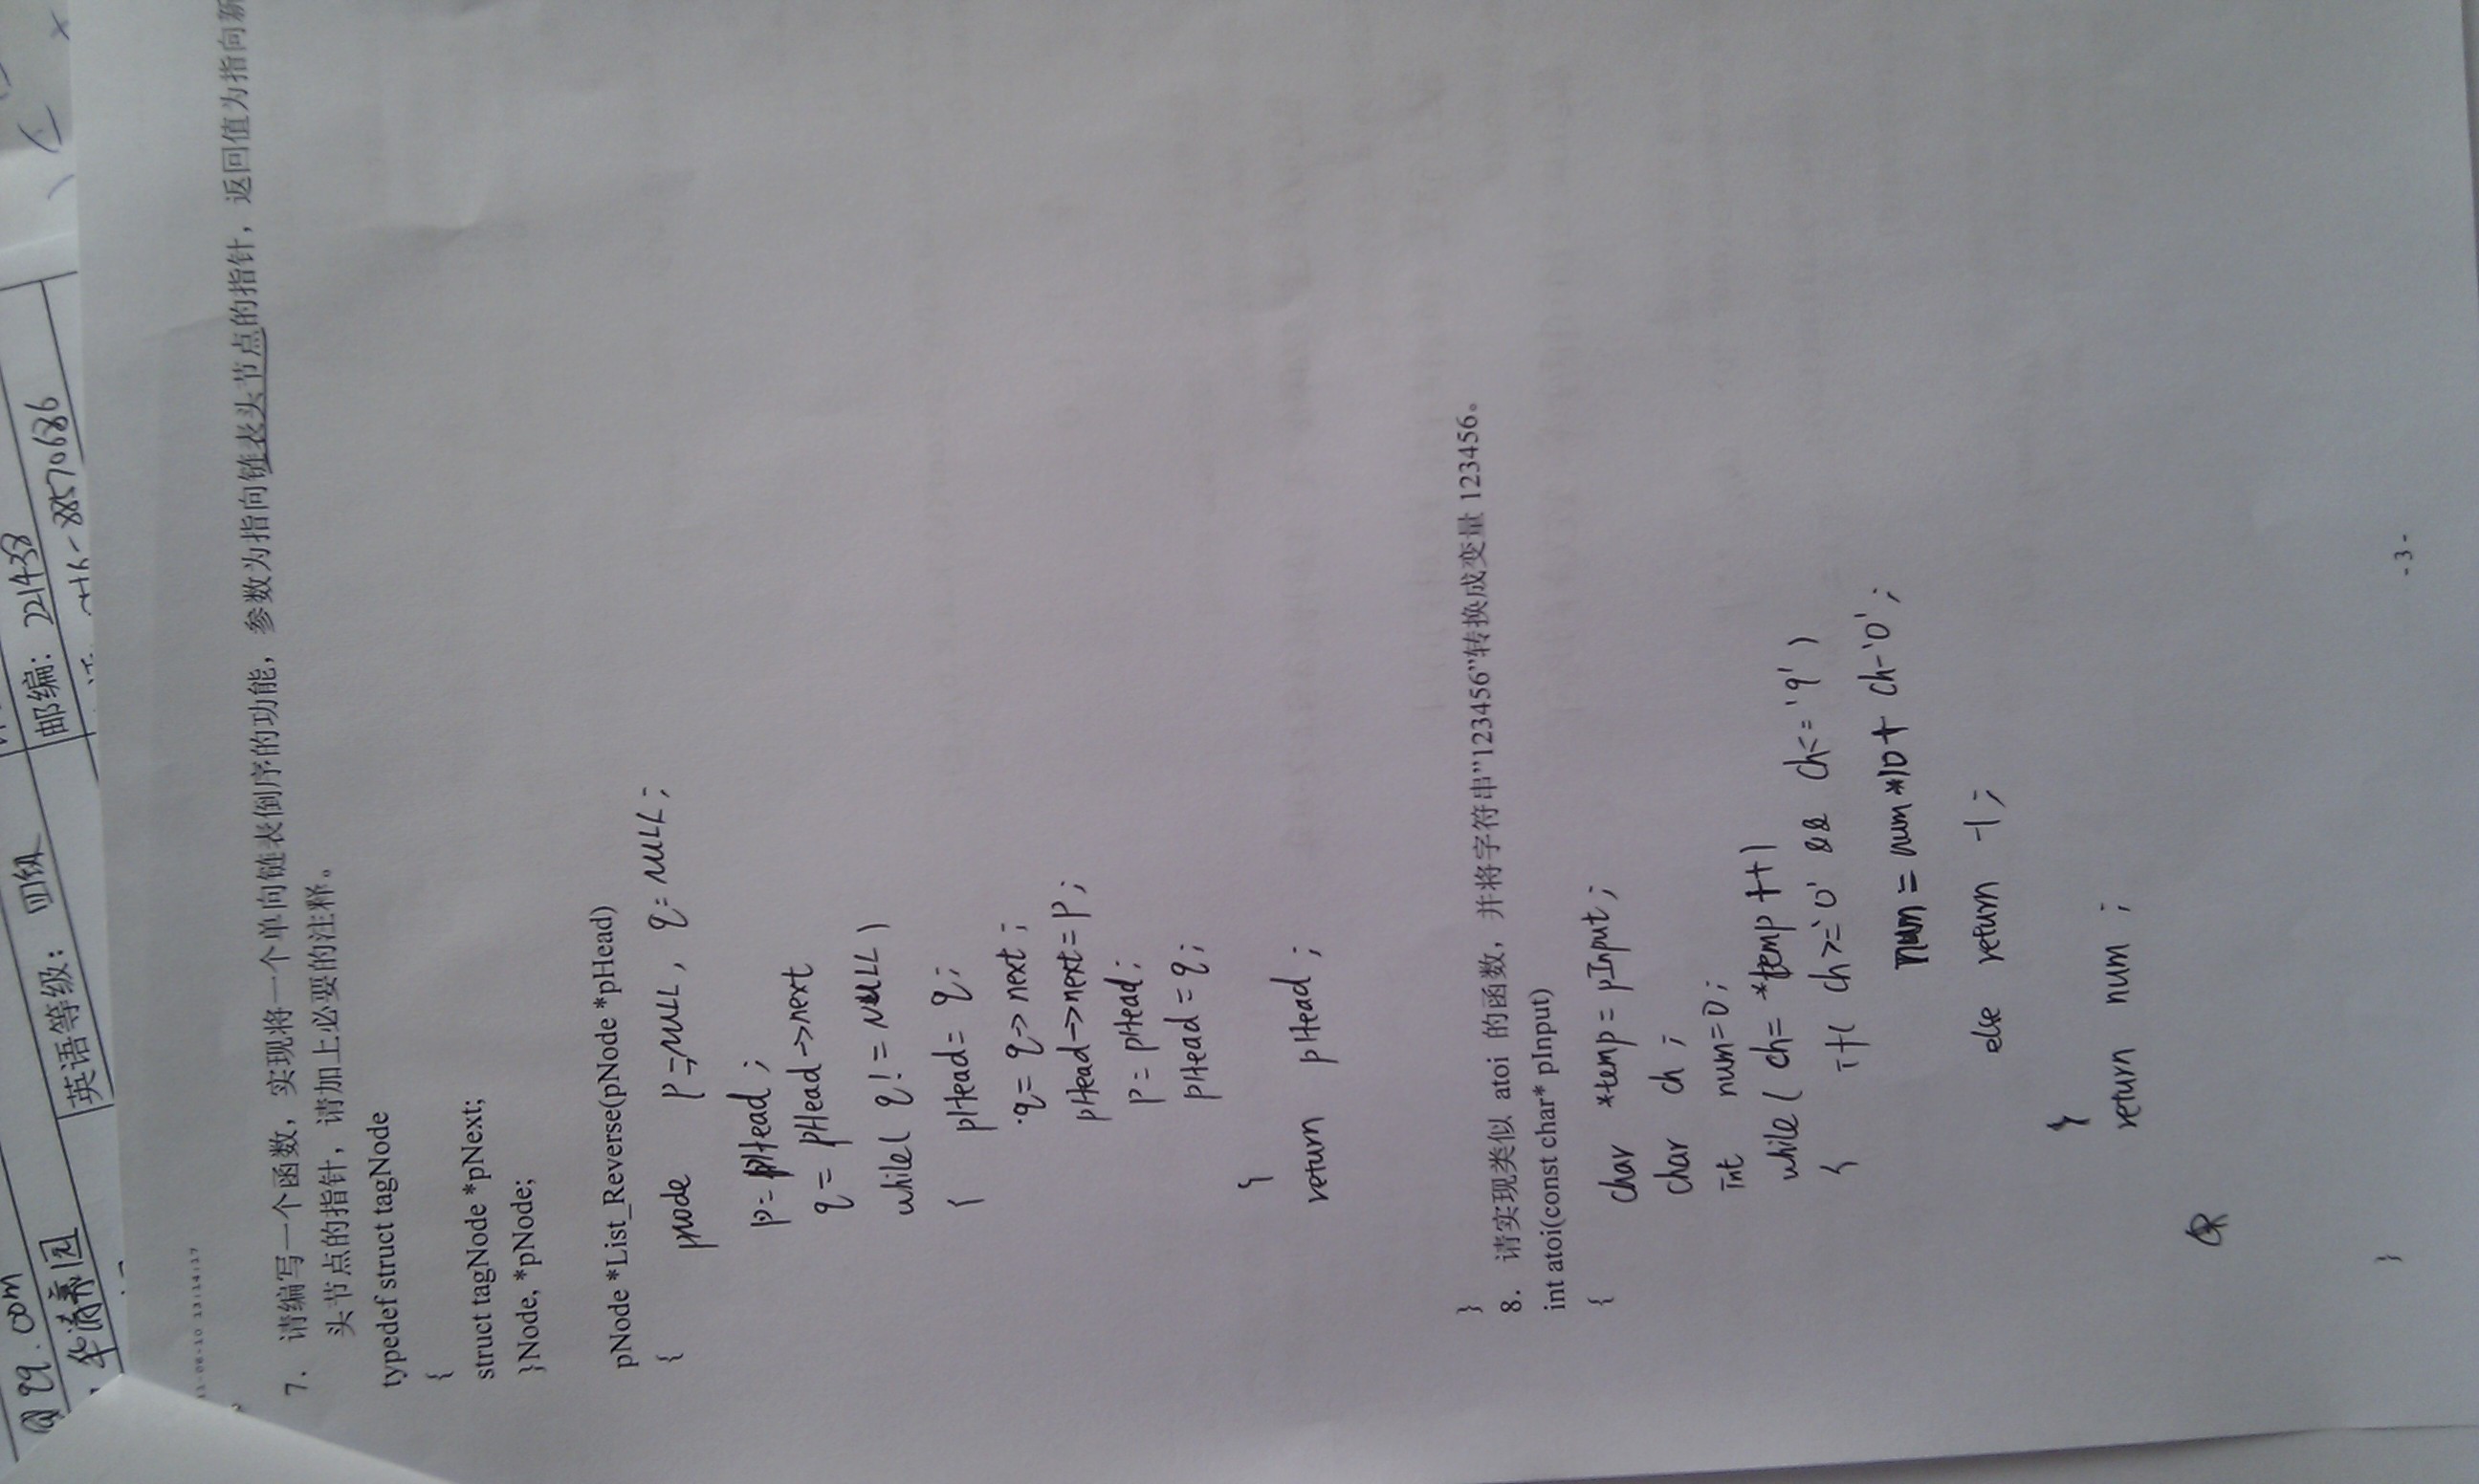 @qq.com
华清园
英语等级: 四级
邮编: 221438
8570686
7. 请编写一个函数，实现将一个单向链表倒序的功能，参数为指向链表头节点的指针，返回值为指向新
头节点的指针，请加上必要的注释。
typedef struct tagNode
{
struct tagNode *pNext;
}Node, *pNode;
pNode *List_Reverse(pNode *pHead)
{
pNode p=NULL, q=NULL;
p=pHead;
q=pHead->next
while(q!=NULL)
{ pHead=q;
q=q->next;
pHead->next=p;
p=pHead;
pHead=q;
}
return pHead;
}
8. 请实现类似 atoi 的函数，并将字符串”123456”转换成变量 123456。
int atoi(const char* pInput)
{
char *temp=pInput;
char ch;
int num=0;
while(ch=*temp++)
{ if(ch>='0' && ch<='9')
num=num*10+ch-'0';
else return -1;
}
return num;
}
-3-